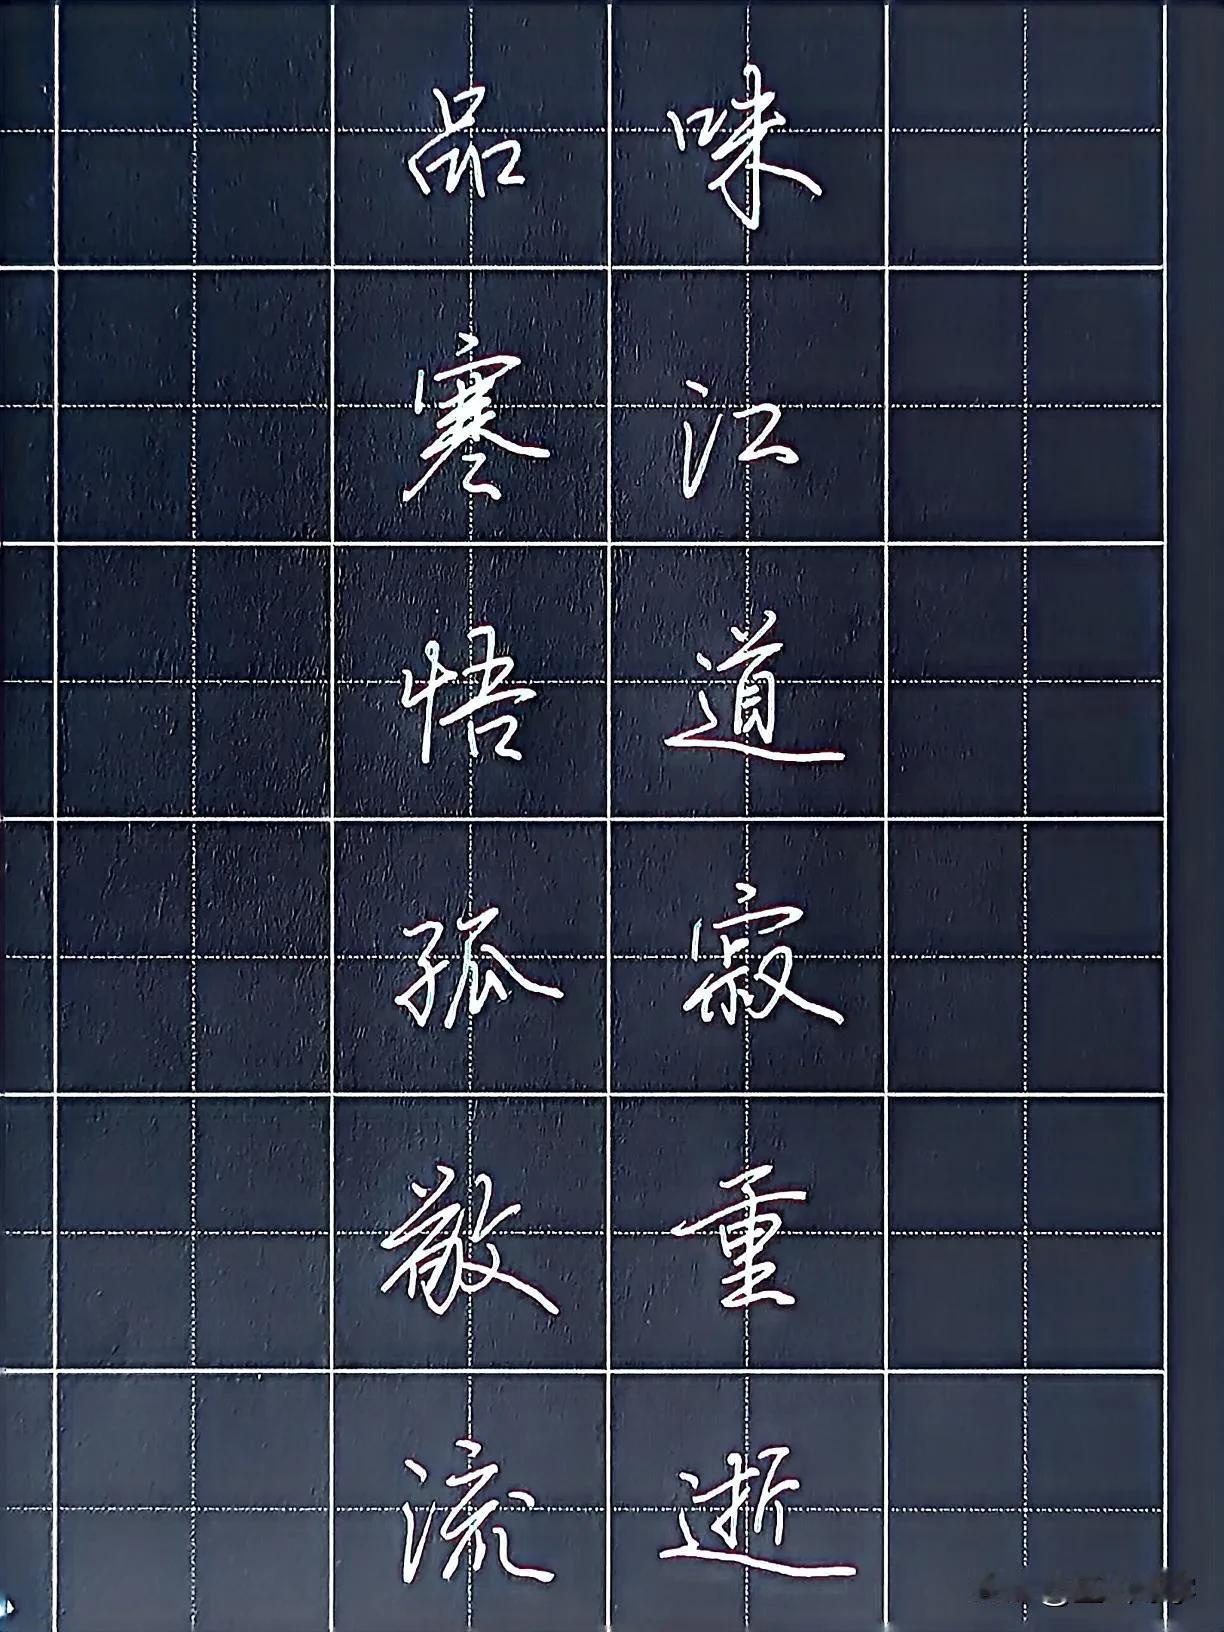 品味
寒江
悟道
孤寂
敬重
流逝